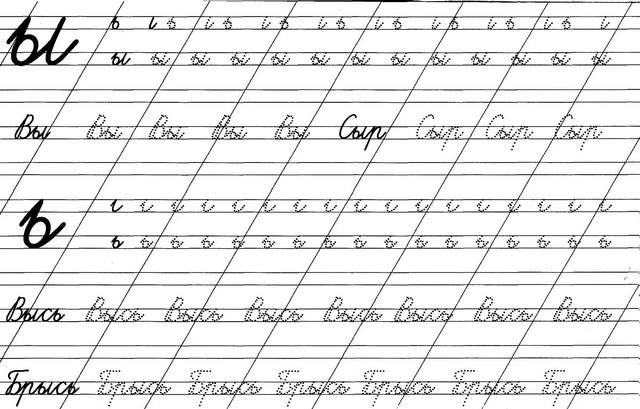 ы ь ı ь ı ь ı ь ı ь ı ь ı ь ı ь ı ь ı
ы ы ы ы ы ы ы ы ы ы ы ы ы
Вы Вы Вы Вы Вы Сыр Сыр Сыр Сыр
ь ı ı ı ı ı ı ı ı ı ı ı ı ı ı ı ı ı
ь ь ь ь ь ь ь ь ь ь ь ь ь ь ь ь ь
Высь Высь Высь Высь Высь Высь Высь Высь
Брысь Брысь Брысь Брысь Брысь Брысь Брысь